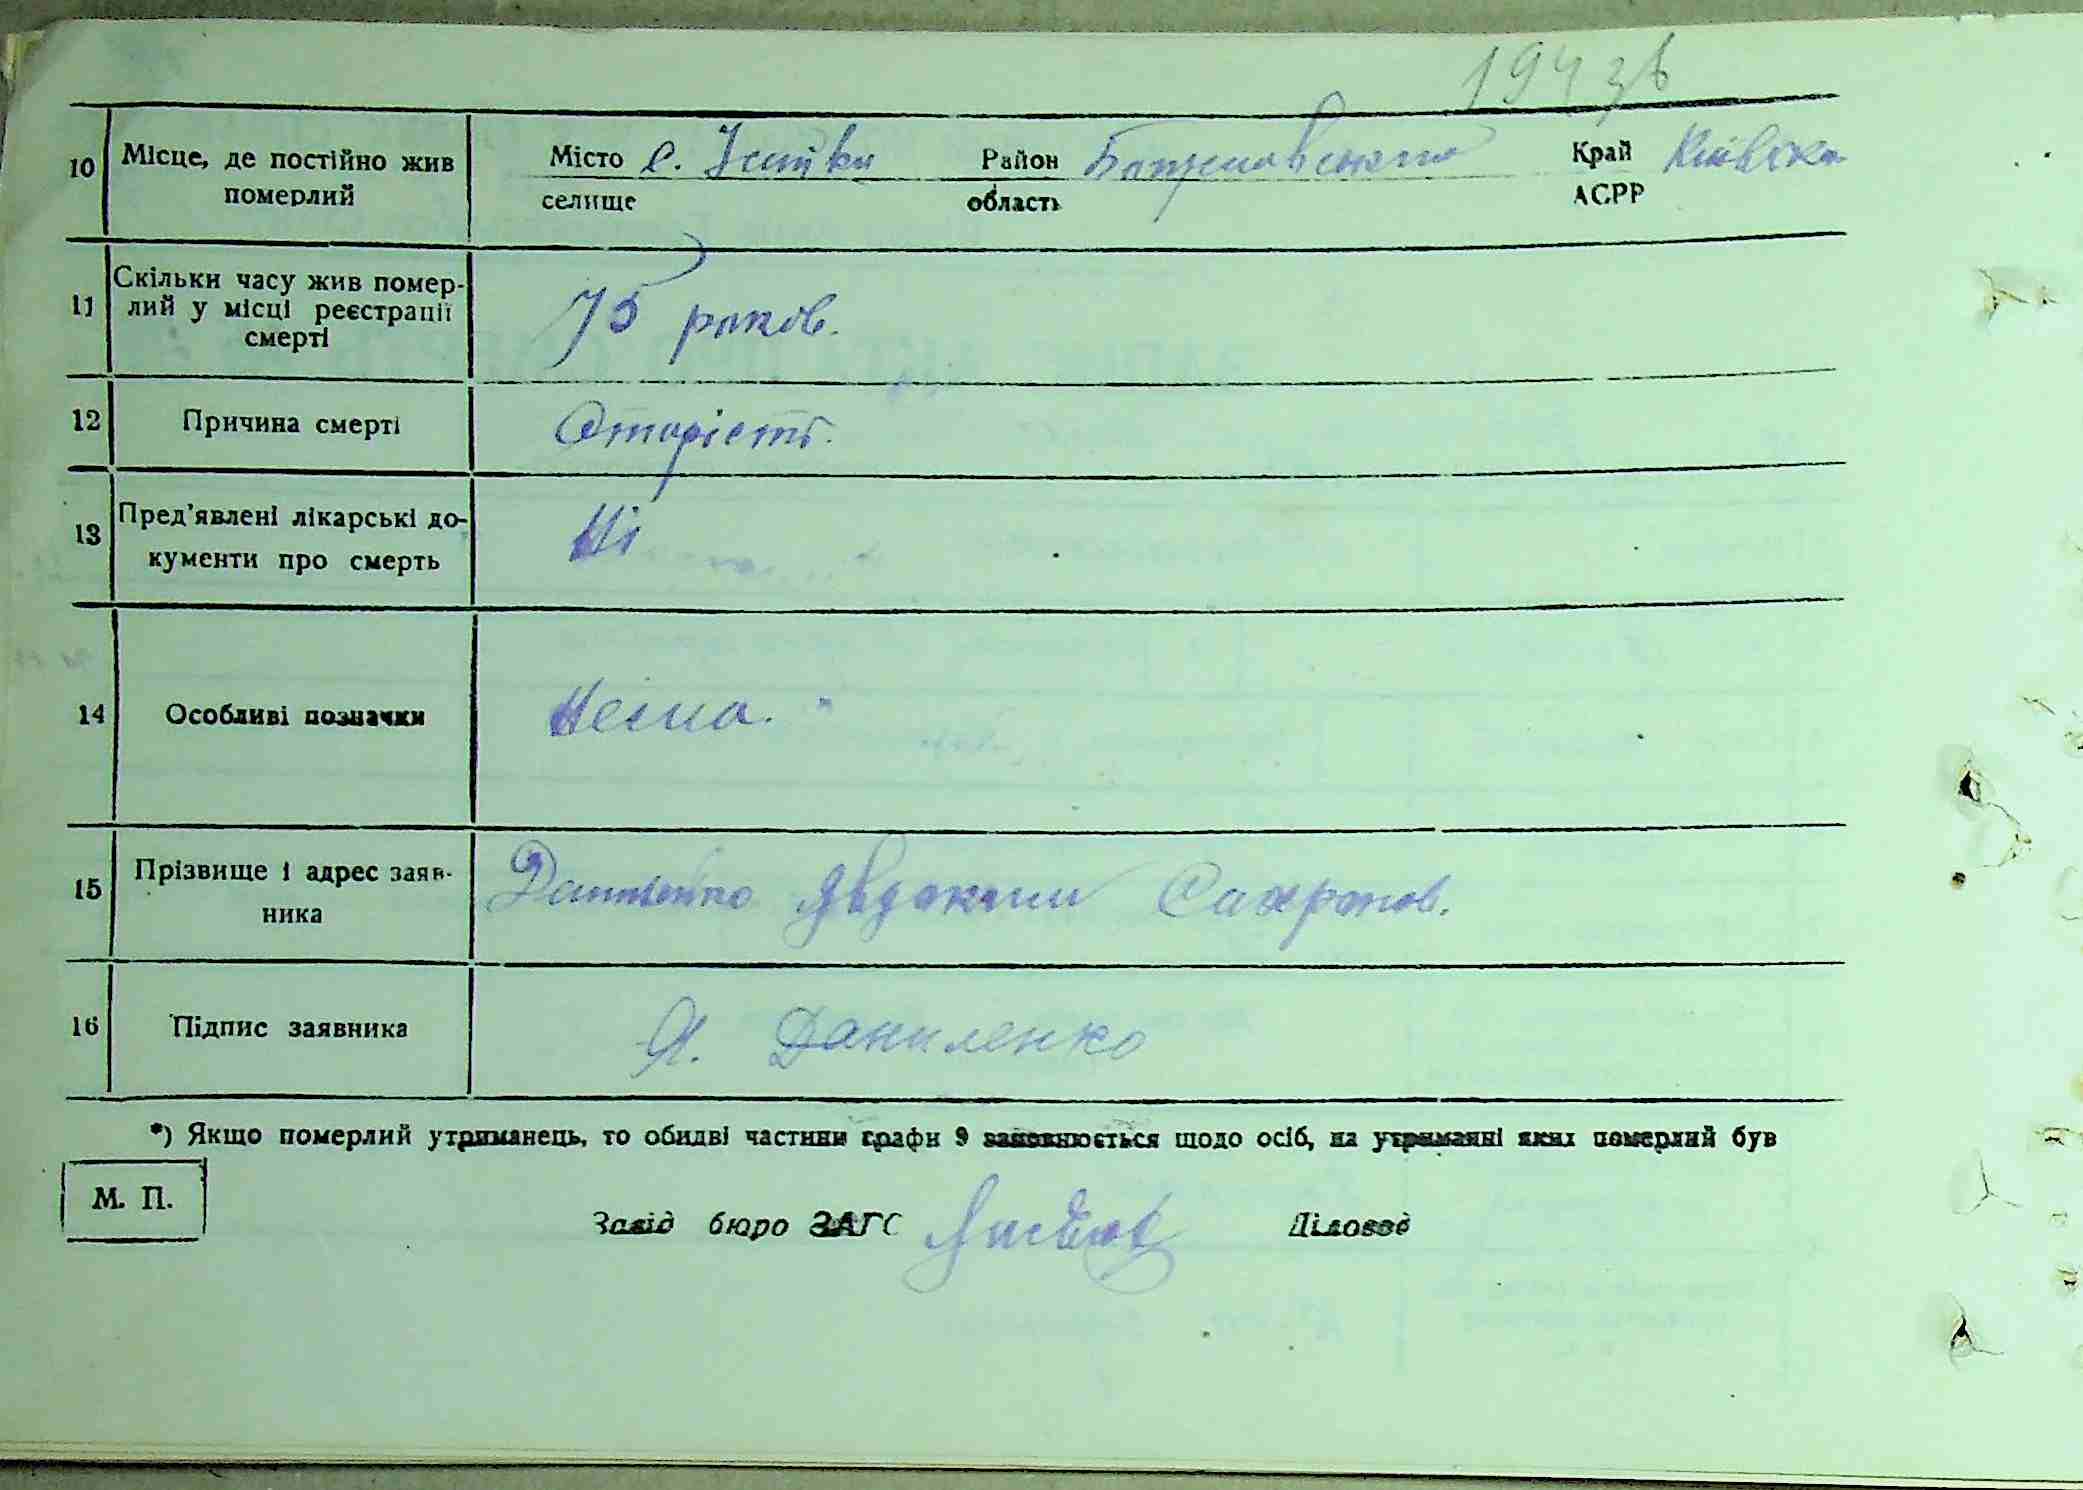 194 зв
10 Місце, де постійно жив померлий Місто селище с. Ісайки Район область Богуславського Край АСРР Київська
11 Скільки часу жив помер-
лий у місці реєстрації
смерті 75 роков.
12 Причина смерті Старість.
13 Пред'явлені лікарські до-
кументи про смерть Ні
14 Особливі позначки Нема.
15 Прізвище і адрес заяв-
ника Даниленко Явдоким Сафронов.
16 Підпис заявника Я. Даниленко
*) Якщо померлий утриманець, то обидві частини графи 9 заповнюється щодо осіб, на утриманні яких померлий був
М. П.
Завід бюро ЗАГС Діловод